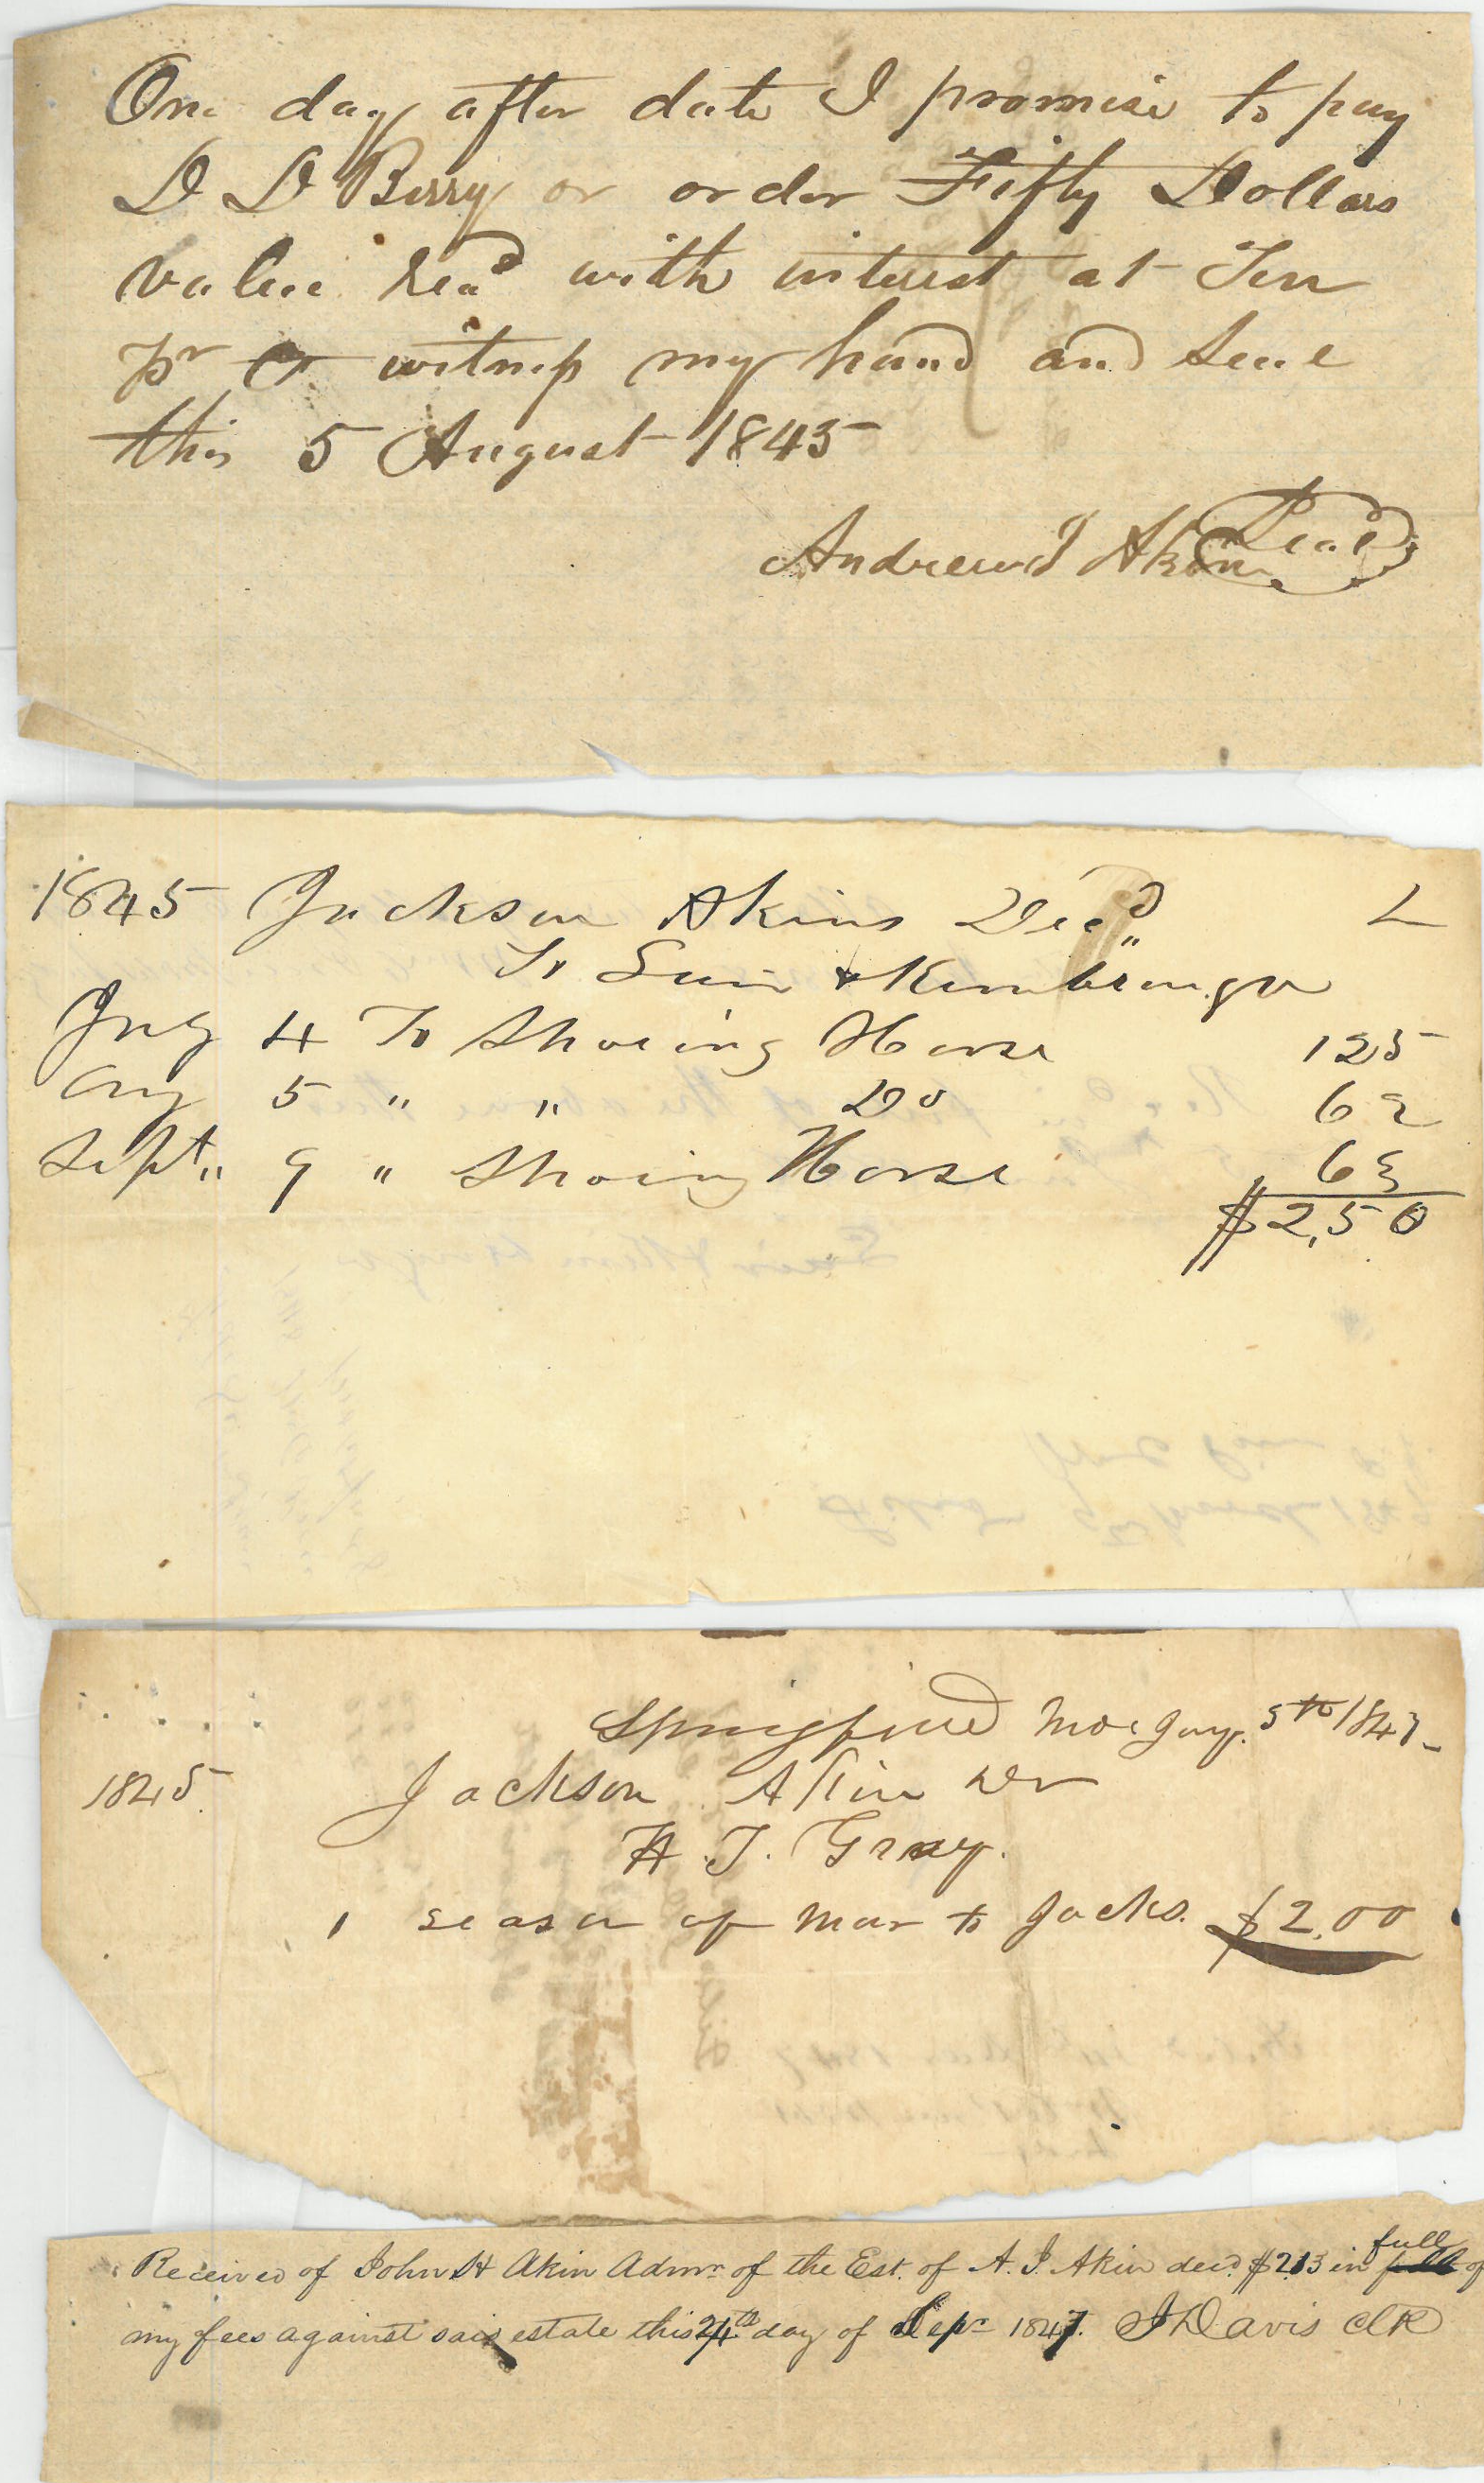 One day after date I promise to pay
D D Berry or order Fifty Dollars
value Recd with interest at Ten
pr Ct witness my hand and Seal
this 5 August 1845
Andrew J Akin Seal
1845 Jackson Akins Decd
To & Kimbrough
4 To Shoeing Horse 125
Aug 5 " " Do 62
Sept " 9 " Shoing Horse 63
$2,50
Springfield Mo 5th 184
1845 Jackson Akin Dr
T. Gray.
1 season of mar to Jacks. $2.00
Received of John H Akin Admr of the Est. of A. J. Akin decd $2.13 in full of
my fees against said estate this 24th day of Sepr 1847. J Davis Clk